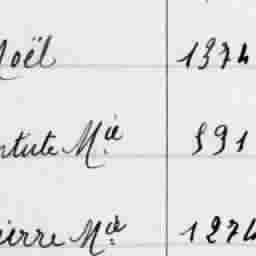 Noël 1374
ntute Mie 591
ierre Mie 1274